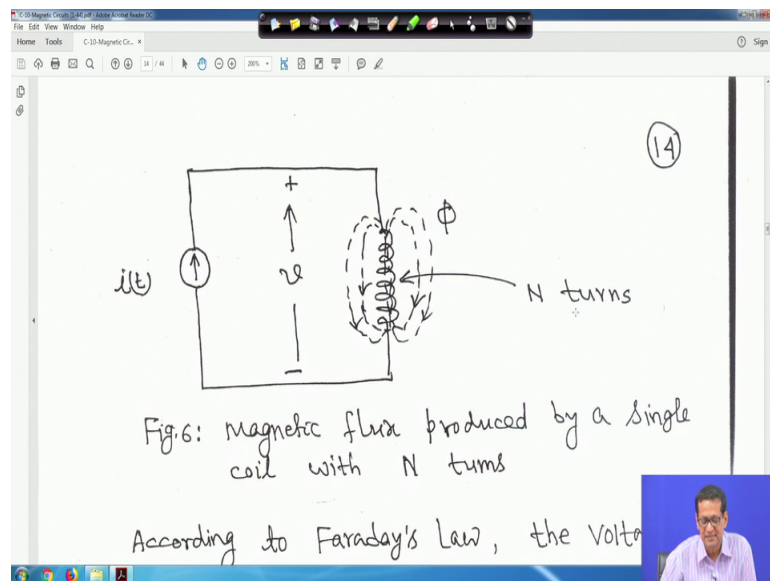 C-10-Magnetic Circuits (1-44).pdf - Adobe Acrobat Reader DC
File Edit View Window Help
Home Tools C-10-Magnetic Cir... × Sign
14 / 44 200%
14
+
Φ
i(t)
v
N turns
−
Fig.6: Magnetic flux produced by a single
coil with N turns
According to Faraday's Law, the Volta